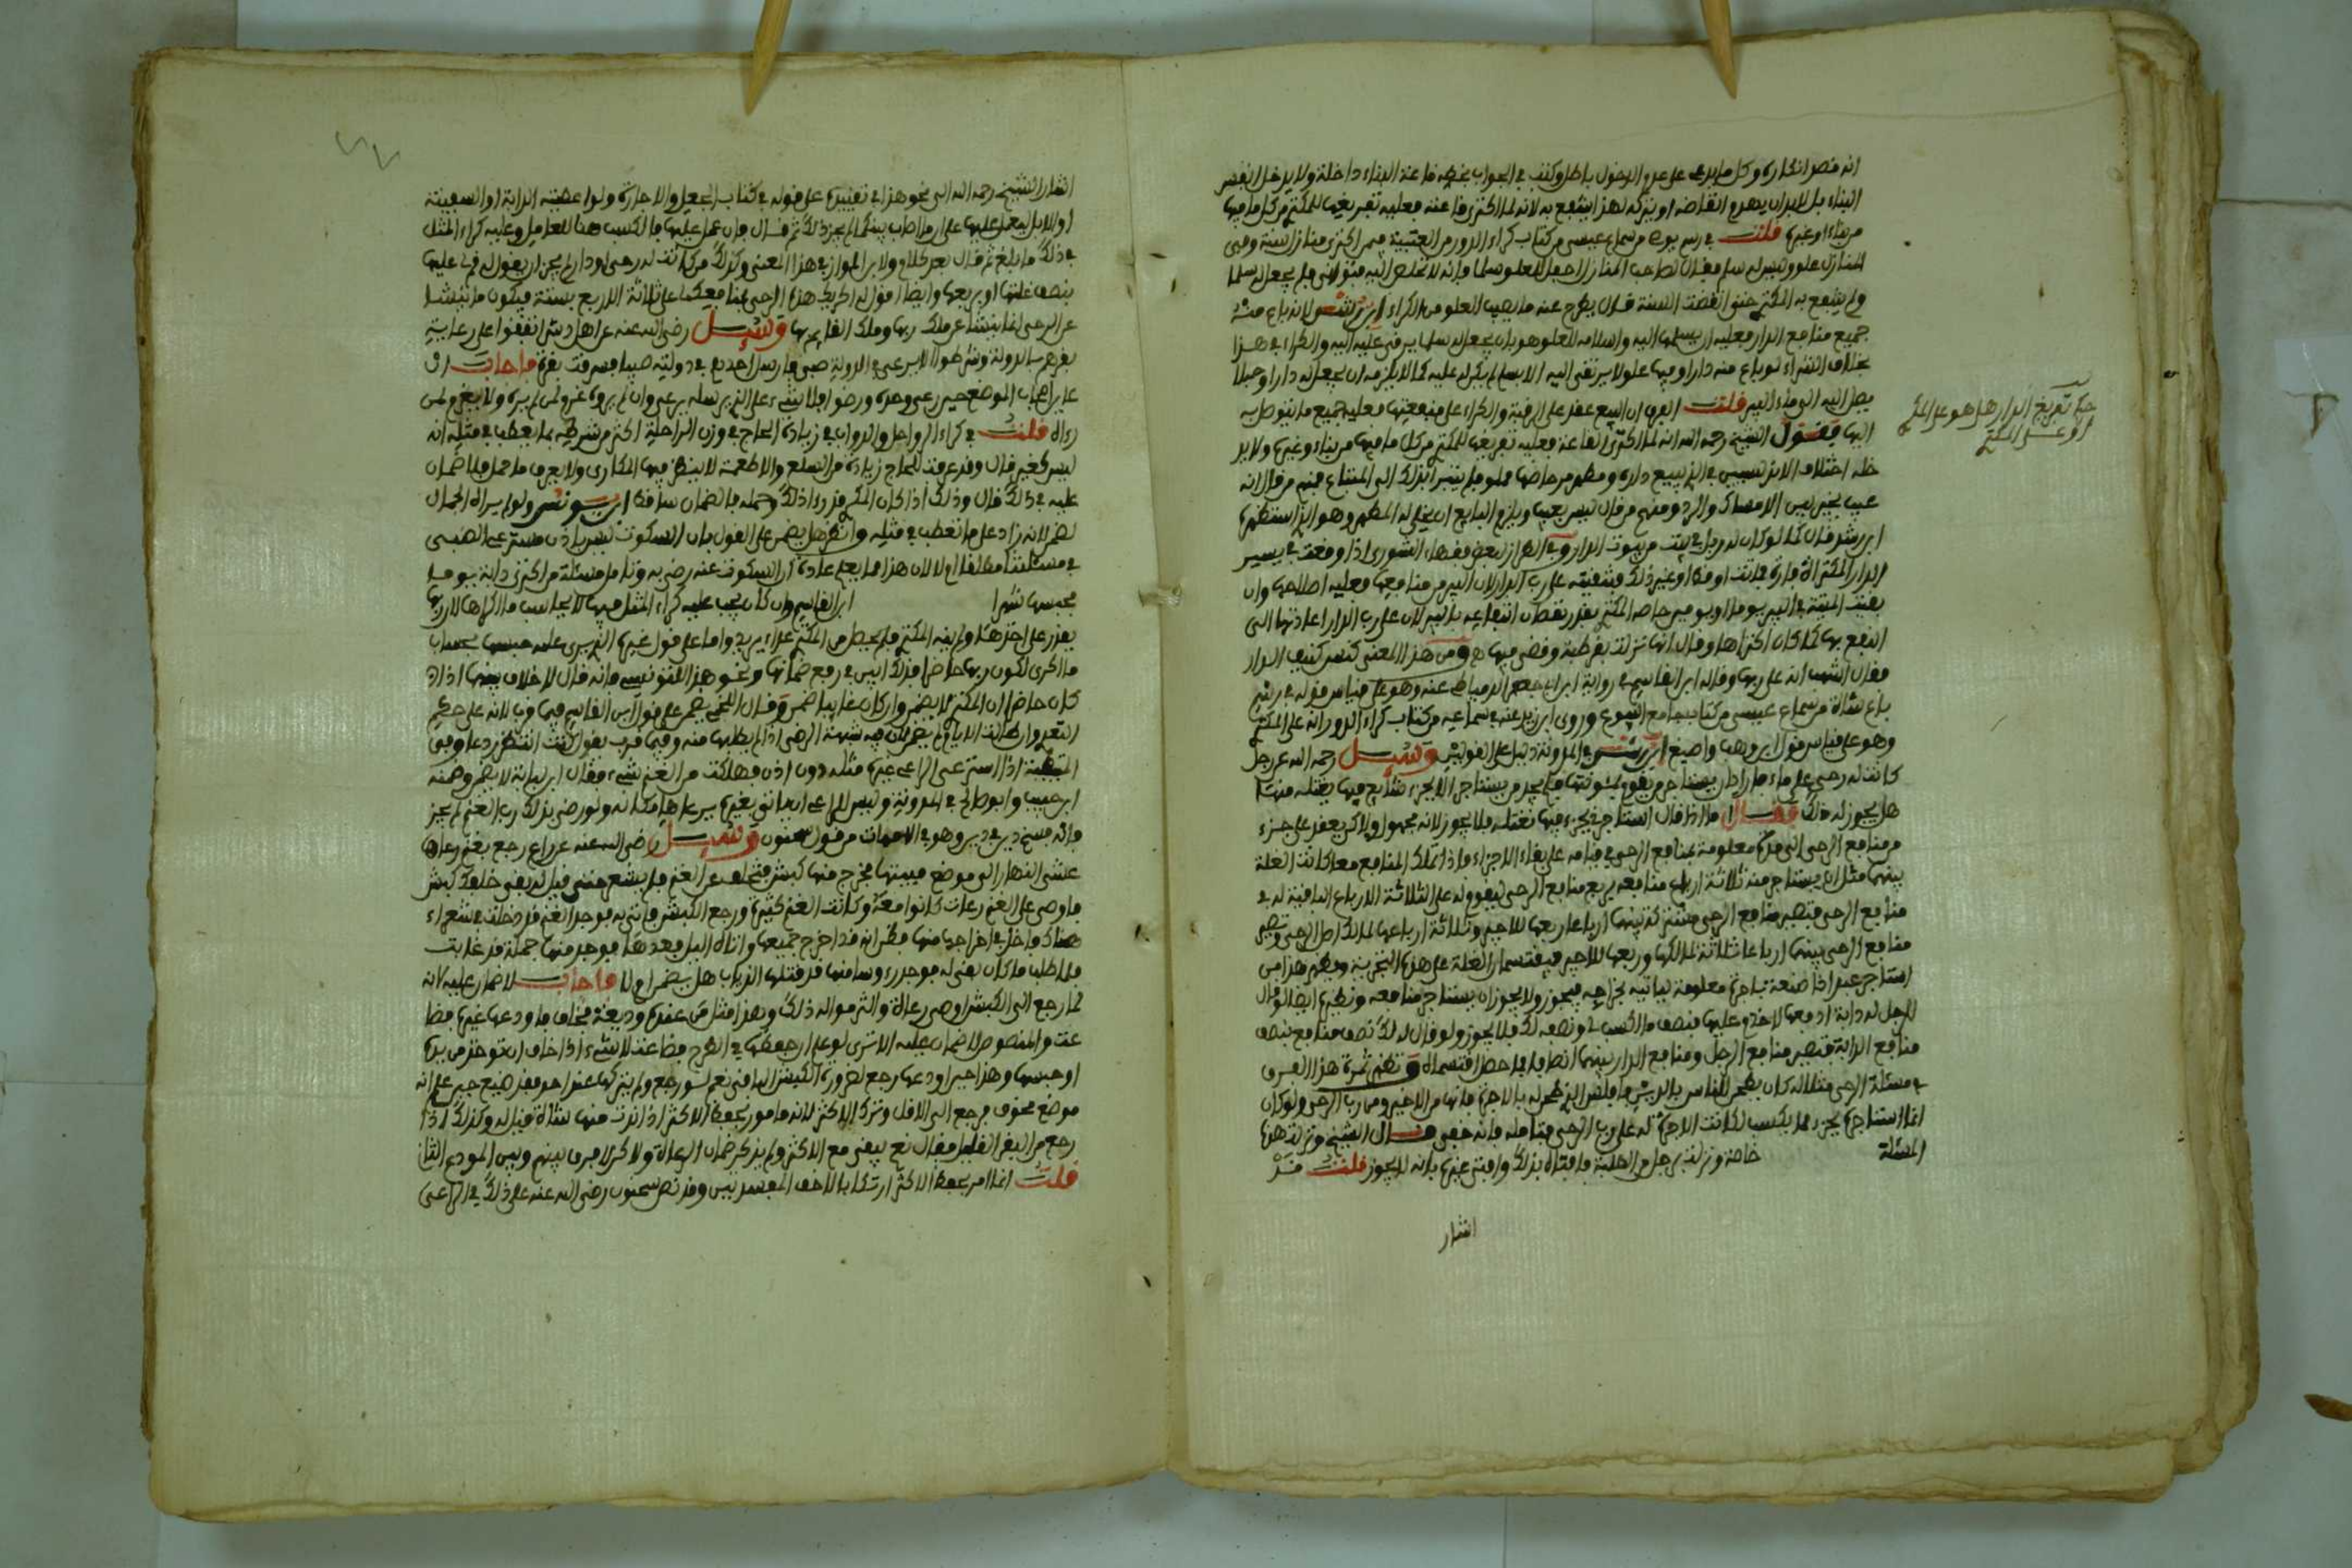 انه فصر انكاره وكل ما يدعى على عدم الدخول باطل وكتب في الجواب بخطه فاعة البناء داخلة ولا يدخل بنفس
البناء بل لا بد ان يهدم انقاضه او يتركه لهذا ينتفع به لانه لما اكترى قاعته فعليه تفريغها للمكتري من كل ما فيها
من بناء او غيره قلت في رسم من سماع عيسى من كتاب كراء الدور من العتبية فيمن اكترى منازل سنة وفي
المنازل علو وليس له سلم فقال لصاحب المنازل اجعل للعلو سلما فإنه لا نخلص اليه فتوانى ولم يجعل له سلما
ولم ينتفع به المكتري حتى انقضت السنة قال يطرح عنه ما يصيب العلو من الكراء ابن رشد لانه باع منه
جميع منافع الدار فعليه ان يسلمها اليه واسلامه للعلو هو بان يجعل له سلما يرقى عليه اليه والكراء في هذا
بخلاف الشراء لو باع منه دارا وفيها علو لا يرتقى اليه الا بسلم لم يكن له عليه كما لا يلزمه ان يجعل له دلوا وحبلا
يصل اليه الى ماء البير قلت الفرق ان البيع عقد على الرقبة والكراء على منفعتها فعليه جميع ما يتوصل به
اليها فقول الشيخ رحمه الله انه لما اكترى القاعة فعليه تفريغها للمكتري من كل ما فيها من بناء وغيره ولا يد
خله اختلاف الاندلسيين في الذي يبيع داره ومطهر مرحاضها مملو ولم يتبرا بذلك الى المبتاع فمنهم من قال انه
عيب يخير بين الامساك والرد ومنهم من قال ليس بعيب ويلزم البايع ان يخلي له المطهر وهو الذي استظهره
ابن رشد قال كما لو كان له زبل في بيت من بيوت الدار وفي الطراز لبعض فقهاء الشورى اذا وقعت في بير
الدار المكتراة فارة فماتت او قط او غير ذلك فتنقيته على رب الدار لان البير من منافعها فعليه اصلاحها وان
بقيت الميتة في البير يوما او يومين حاصه المكتري بقدر نقصان انتفاعه بالبير لان على رب الدار اعادتها الى
انتفع بها كما كان اكتراها وقال انها نزلت بقرطبة وقضي فيها ومن هذا المعنى كنس كنيف الدار
فقال اشهب انه على ربها وقاله ابن القاسم في رواية ابي جعفر الدمياطي عنه وهو على قياس قوله في رسم
باع شاة من سماع عيسى من كتاب جامع البيوع وروى ابو زيد عنه في سماعه من كتاب كراء الدور انه على المكتري
وهو على قياس قول ابن وهب واصبغ ابن رشد وفي المدونة دليل على القولين وسئل رحمه الله عن رجل
كانت له رحى على ماء فاراد ان يستاجر من يقوم بمئونتها فلم يجد من يستاجر الا بجزء شايع فيها بغلته منها
هل يجوز له ذلك فقال اما اذا قال استاجر بجزء فيها بغلته فلا يجوز لانه مجهول ولاكن يعقد على جزء
من منافع الرحى الى مدة معلومة بمنافع الرحى في قيامه على بقاء الاجزاء فاذا تملك المنافع معا كانت الغلة
بينهما مثل ان يستاجر منه ثلاثة ارباع منافعه بربع منافع الرحى ليقوم له على الثلاثة الارباع الباقية له في
منافع الرحى فتصير منافع الرحى مشتركة بينهما ارباعا ربعها للاجير وثلاثة ارباعها لمالك اصل الرحى وتصير
منافع الرحى بينهما ارباعا ثلاثة لمالكها وربعها للاجير فيقتسمان الغلة على هذه التجزية ويظهر هذا من
استاجر عبدا ذا صنعة باجرة معلومة ليأتيه بخراجه فيجوز ولا يجوز ان يستاجر منافعه ونظيره ايضا لو قال
الرجل له دابة ادفعها لاخدم عليها فنصف ما اكسب لي ونصفه لك فلا يجوز ولو قال له لك نصف منافع بنصف
منافع الدابة فتصير منافع الرجل ومنافع الدار بينهما انصافا فما حصل اقتسماه وتظهر ثمرة هذا الفرق
في مسئلة الرحى مثلا انه كان يطحن للناس بالدين فافلس الذي طحن له بالاجرة فانها من الاجير ومن رب الرحى ولو كان
انما استاجره بجزء مما يكسب لكانت الاجرة له على رب الرحى فتامله فانه خفي قال الشيخ ونزلت هذه
المسئلة خاصة ونزلت برجل من الطلبة فافتاه بذلك وافتى غيره بانه لا يجوز قلت قد
اشار
حكم تفريغ الدار هل هو على المكري
او على المكتري
اشار الشيخ رحمه الله الى نحو هذا في تقييده على قوله في كتاب الجعل والاجارة ولو اعطيته الدابة او السفينة
او الابل يعمل عليها على ان ما اصاب بينكما لم يجز ذلك ثم قال فان عمل عليها فالكسب هنا للعامل وعليه كراء المثل
في ذلك ما بلغ ثم قال بعد كلام ولابن المواز في هذا المعنى وكذلك من كانت له رحى او دار لم يجز ان يقول له قم لي عليها
بنصف غلتها او بربعها وايضا قول له اكريك هذه الرحى بمنافعك على ثلاثة الاربع بسنة فيكون ما ينشا
عن الرحى انما ينشا عن ملك ربها وملك القايم بها وسئل رضي الله عنه عن اهل دشر اتفقوا على رعاية
بقرهم بالدولة وشرطوا الا يرعى في الدولة صبي فارسل احدهم في دولته صبيا فسرقت بقرة فاجاب ان
علم اهل الموضع حين رعى وحده ورضوا فلا شيء على الذي يرسله يرعى وان لم يروه غرم لمن لم يره ولا يغرم لمن
رءاه قلت في كراء الرواحل والدواب في زيادة الحاج في وزن الراحلة اكثر من شرطه بما يعطب في مثله انه
ليس كغيره قال وقد عرفت للحاج زيادة من السلع والاطعمة لا ينظر فيها المكاري ولا يعرف ما حمل فلا ضمان
عليه في ذلك قال وذلك اذا كان المكري قد رءا ذلك وحمله فالضمان ساقط ابن يونس ولو لم يره الجمال
لضمن لانه زاد على ما تعطب في مثله وانظر هل يضمن على القول بان السكوت ليس باذن مسترعي الصبي
في مسئلتنا مطلقا او لا لان هذا مما يعلم عادة ان السكوت عنه رضى به وتامل مسئلة من اكترى دابة يوما
فحبسها شهرا ابن القاسم وان كان يجب عليه كراء المثل فيها لا بحساب ما اكراها لان ربها
يقدر على اخذها ولم يفه المكتري فلم يحط من المكتري على ما يريد واما على قول غيره الذي يرى عليه حبسها بحساب
ما اكرى لكون ربها حاضرا فذلك ابين في رفع ضمانها ونحو هذا للتونسي فانه قال لا خلاف بينهما اذا
كان حاضرا ان المكتري لا يضمن وان كان غايبا ضمن وقال اللخمي يضمن على قول ابن القاسم فيما قرب لانه على حكم
التعدي وان طالت الايام لم يضمن لان فيه شبهة الرضى اذا لم يطلبها منه وفيما قرب يقول كنت انتظر ردها وفي
اذا استرعى الراعي غيره مثله دون اذن فهلكت من الغنم شيء فقال ابن لبابة لا يضمن وضمنه
ابن حبيب وابو صالح وفي المدونة وليس للراعي ان ياتي بغيره يرعاها مكانه ولو رضي بذلك رب الغنم لم يجز
فانه فسخ دين في دين وهو في الامهات من قول سحنون وسئل رضي الله عنه عن راع رجع بغنم رعاها
عشي النهار الى موضع مبيتها فخرج منها كبش فتخلف عن الغنم فلم يشعر حتى قيل له بقي خلفك كبش
فاوصى على الغنم رعاة كانوا معه وكانت الغنم كثيرة ورجع للكبش فاتى به فوجد الغنم قد دخلت في شعراء
هناك فاخذ في اخراجها منها فظن انه قد اخرج جميعها واتاه الليل فعدها فوجد منها جملة قد غابت
فلما طلب ما كان بقي له فوجد رءوسا منها قد قتلها الذياب هل يضمن ام لا فاجاب لا ضمان عليه لانه
لما رجع الى الكبش اوصى رعاة والتزموا له ذلك وهذا مثل من عنده وديعة فخاف فاودعها غيره فضا
عت والمنصوص لا ضمان عليه الا ترى لو علم ارجعها في الطريق فضاعت لا شيء اذا خاف ان توخذ من يده
او حبسها وهذا حين اودعها رجع لضرورة الكبش الباقي نعم لو رجع ولم يتركها عند احد فقد ضيع حين علم انه
موضع مخوف فرجع الى الاقل وترك الاكثر لانه مامور بحفظ الاكثر اذا ندت منها شاة قيل له وكذلك اذا
رجع من البقر القليل فقال نعم يبقى مع الاكثر ولم يذكر ضمان الرعاة ولاكن لا فرق بينهم وبين المودع الثاني
قلت انما امر بحفظ الاكثر ارتكابا لاخف المفسدتين وقد نص سحنون رضي الله عنه على ذلك في الراعي